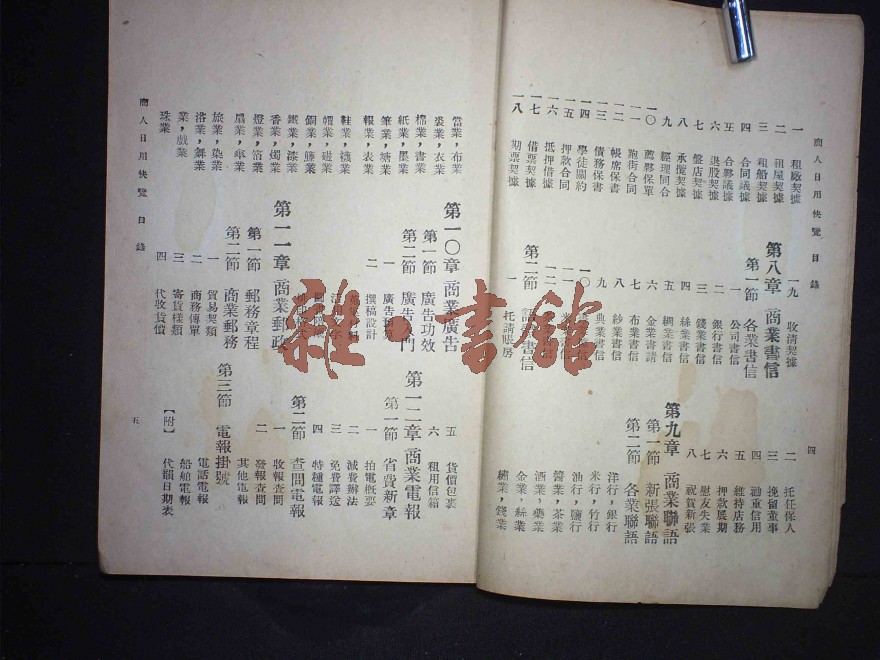 商人日用快覽 目錄
四
一 租廠契據
二 租屋契據
三 租船契據
四 合同議據
五 合夥議據
六 退股契據
七 盤店契據
八 承儎契據
九 經理同合
一〇 薦夥保單
一一 跑街合同
一二 帳席保書
一三 債務保書
一四 學徒關約
一五 押款合同
一六 抵押借據
一七 借票契據
一八 期票契據
一九 收清契據
第八章 商業書信
第一節 各業書信
一 公司書信
二 銀行書信
三 錢業書信
四 絲業書信
五 綢業書信
六 金業書請
七 布業書信
八 紗業書信
九 典業書信
一〇
一一
一二
第二節 書信
一 托請賬房
二 托任保人
三 挽留董事
四 勸重信用
五 維持店務
六 押款展期
七 慰友失業
八 祝賀新張
第九章 商業聯語
第一節 新張聯語
第二節 各業聯語
洋行,銀行
米行,竹行
油行,鹽行
醬業,茶業
酒業,藥業
金業,絲業
繡業,錢業
當業,布業
裘業,衣業
棉業,書業
紙業,墨業
筆業,糖業
報業,表業
鞋業,襪業
帽業,磁業
銅業,籐業
鐵業,漆業
香業,燭業
燈業,箔業
扇業,傘業
旅業,染業
浴業,舞業
業,戲業
珠業
第一〇章 商業廣告
第一節 廣告功效
第二節 廣告入門
一 廣告
二 撰稿設計
第一一章 商業郵政
第一節 郵務章程
第二節 商業郵務
一 貿易契類
二 商務傳單
三 寄貨樣類
四 代收貨價
五 貨價包裹
六 租用信箱
第一二章 商業電報
第一節 省費新章
一 拍電概要
二 減費辦法
三 免費譯送
四 特種電報
第二節 查問電報
一 收報查問
二 發報查問
其他電報
第三節 電報掛號
電話電報
船舶電報
【附】 代韻日期表
商人日用快覽 目錄
五
雜·書館